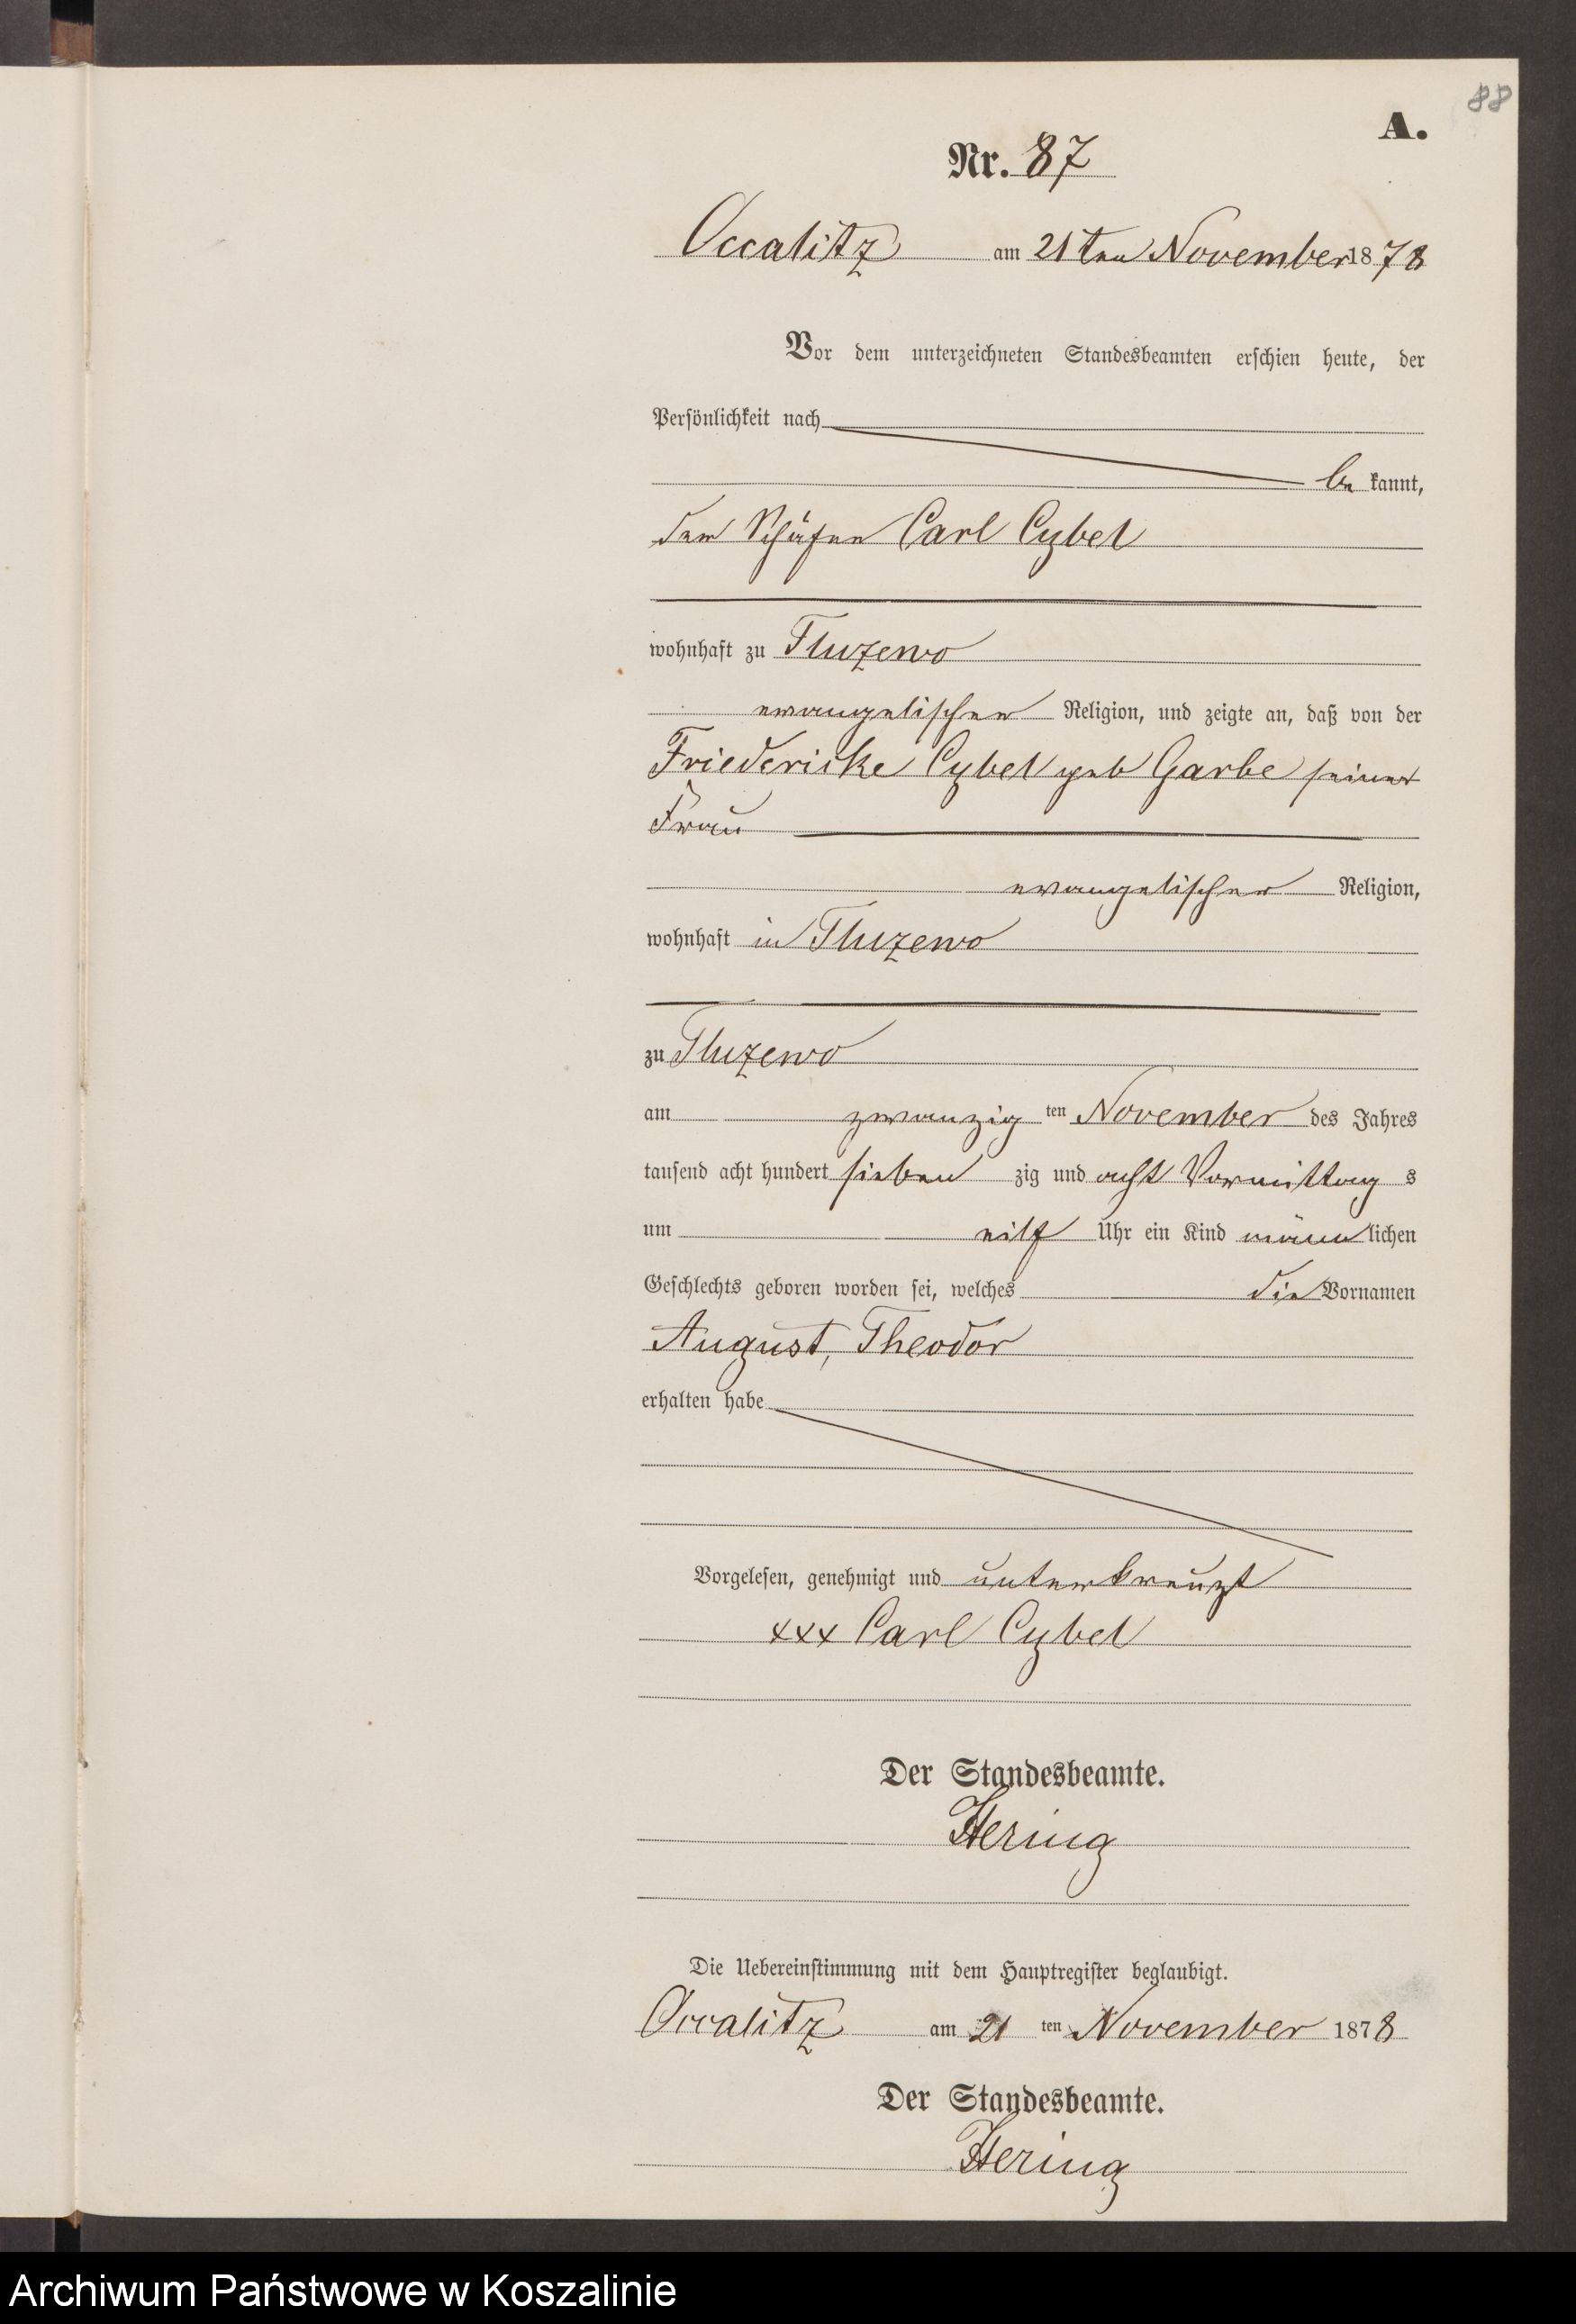 88
A.
Nr. 87
Occalitz am 21ten November 1878
Vor dem unterzeichneten Standesbeamten erschien heute, der
Persönlichkeit nach
be kannt,
der Schäfer Carl Cybel
wohnhaft zu Tluzewo
evangelischer Religion, und zeigte an, daß von der
Friedericke Cybel geb Garbe seiner
Frau
evangelischer Religion,
wohnhaft in Tluzewo
zu Tluzewo
am zwanzig ten November des Jahres
tausend acht hundert sieben zig und acht Vormittag s
um eilf Uhr ein Kind männ lichen
Geschlechts geboren worden sei, welches die Vornamen
August, Theodor
erhalten habe
Vorgelesen, genehmigt und unterkreuzt
xxx Carl Cybel
Der Standesbeamte.
Hering
Die Uebereinstimmung mit dem Hauptregister beglaubigt.
Occalitz am 21 ten November 1878
Der Standesbeamte.
Hering
Archiwum Państwowe w Koszalinie